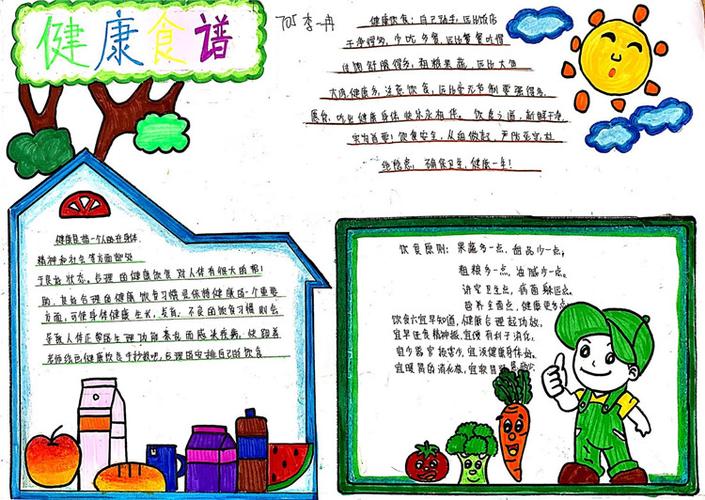 健康食谱
705 李一冉
健康饮食：自己动手，远比饭店
干净得多，少吃多餐，远比暴食吃得
舒服得多，粗粮果蔬，远比大鱼
大肉健康多，注意饮食，远比毫无节制要强得多，
愿你，吃出健康身体快乐永相伴。饮食之道，新鲜干净，
实为首要！饮食安全，从我做起，严防死守，杜
绝隐患，确保卫生，健康一生！
健康是指一个人的在身体
精神和社会等方面都处
于良好状态。合理的健康饮食对人体有很大的帮
助，良好合理的健康饮食习惯是保持健康的一个重要
方面，可使身体健康生长，发育，不良的饮食习惯则会
导致人体正常的生理功能紊乱而感染疾病，
健康饮食手抄报吧，合理的安排自己的饮食
饮食原则：果蔬多一点，甜品少一点，
粗粮多一点，油腻少一点，
讲究卫生点，病菌躲远点，
营养全面点，健康更多点
饮食六宜早知道，健康合理起功效，
宜早进食精神振，宜慢有利于消化，
宜少器官损害少，宜淡健康身体好，
宜暖胃易消化液，宜软